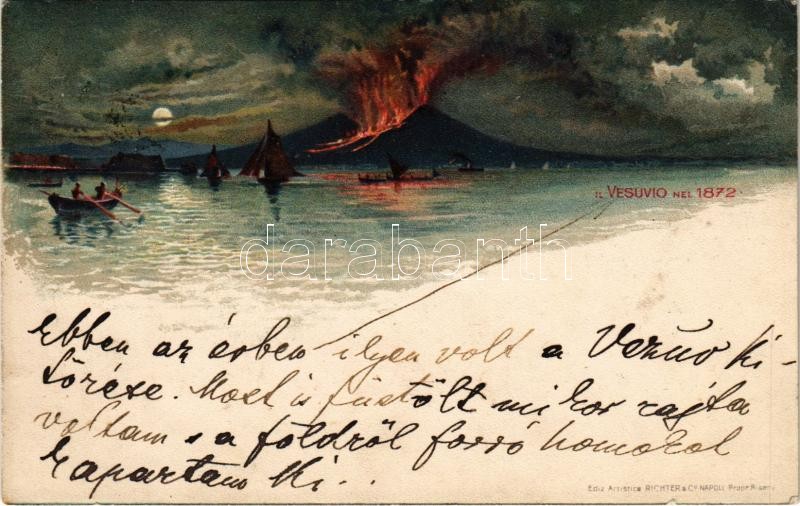 IL VESUVIO NEL 1872.
darabanth
Ebben az évben ilyen volt a Vezuv ki-
törése. Most is füstölt mikor rajta
voltam s a földről forró homokot
kapartam ki...
Ediz. Artistica RICHTER & Cº. NAPOLI. Propr. Riserv.